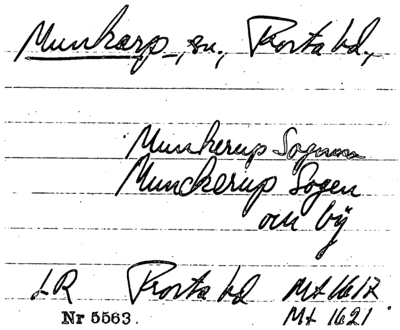 Munkarp, sn., Frosta hd,
Munkerup Sognn
Munckerup Sogen
om bÿ
LR Frosta hd Mt 1617
Nr 5563. Mt 1621